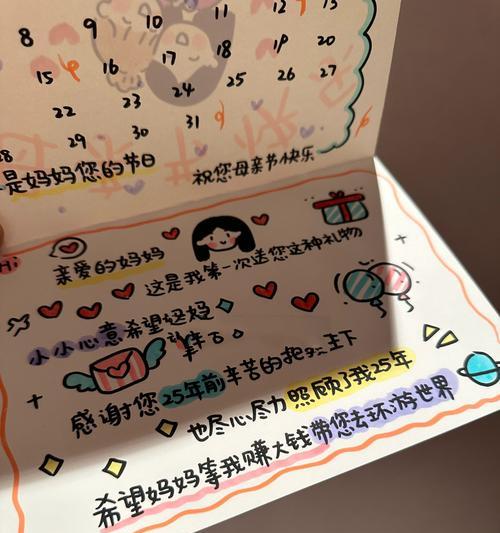 8 9 10 11 12 13
15 16 17 18 19 20
22 23 24 25 26 27
28 29 30 31
是妈妈您的节日
祝您母亲节快乐
Hi
亲爱的妈妈
这是我第一次送您这种礼物
小小心意希望妈妈
感谢您25年前辛苦的把我生下
也尽心尽力照顾了我25年
希望妈妈等我赚大钱带您去环游世界